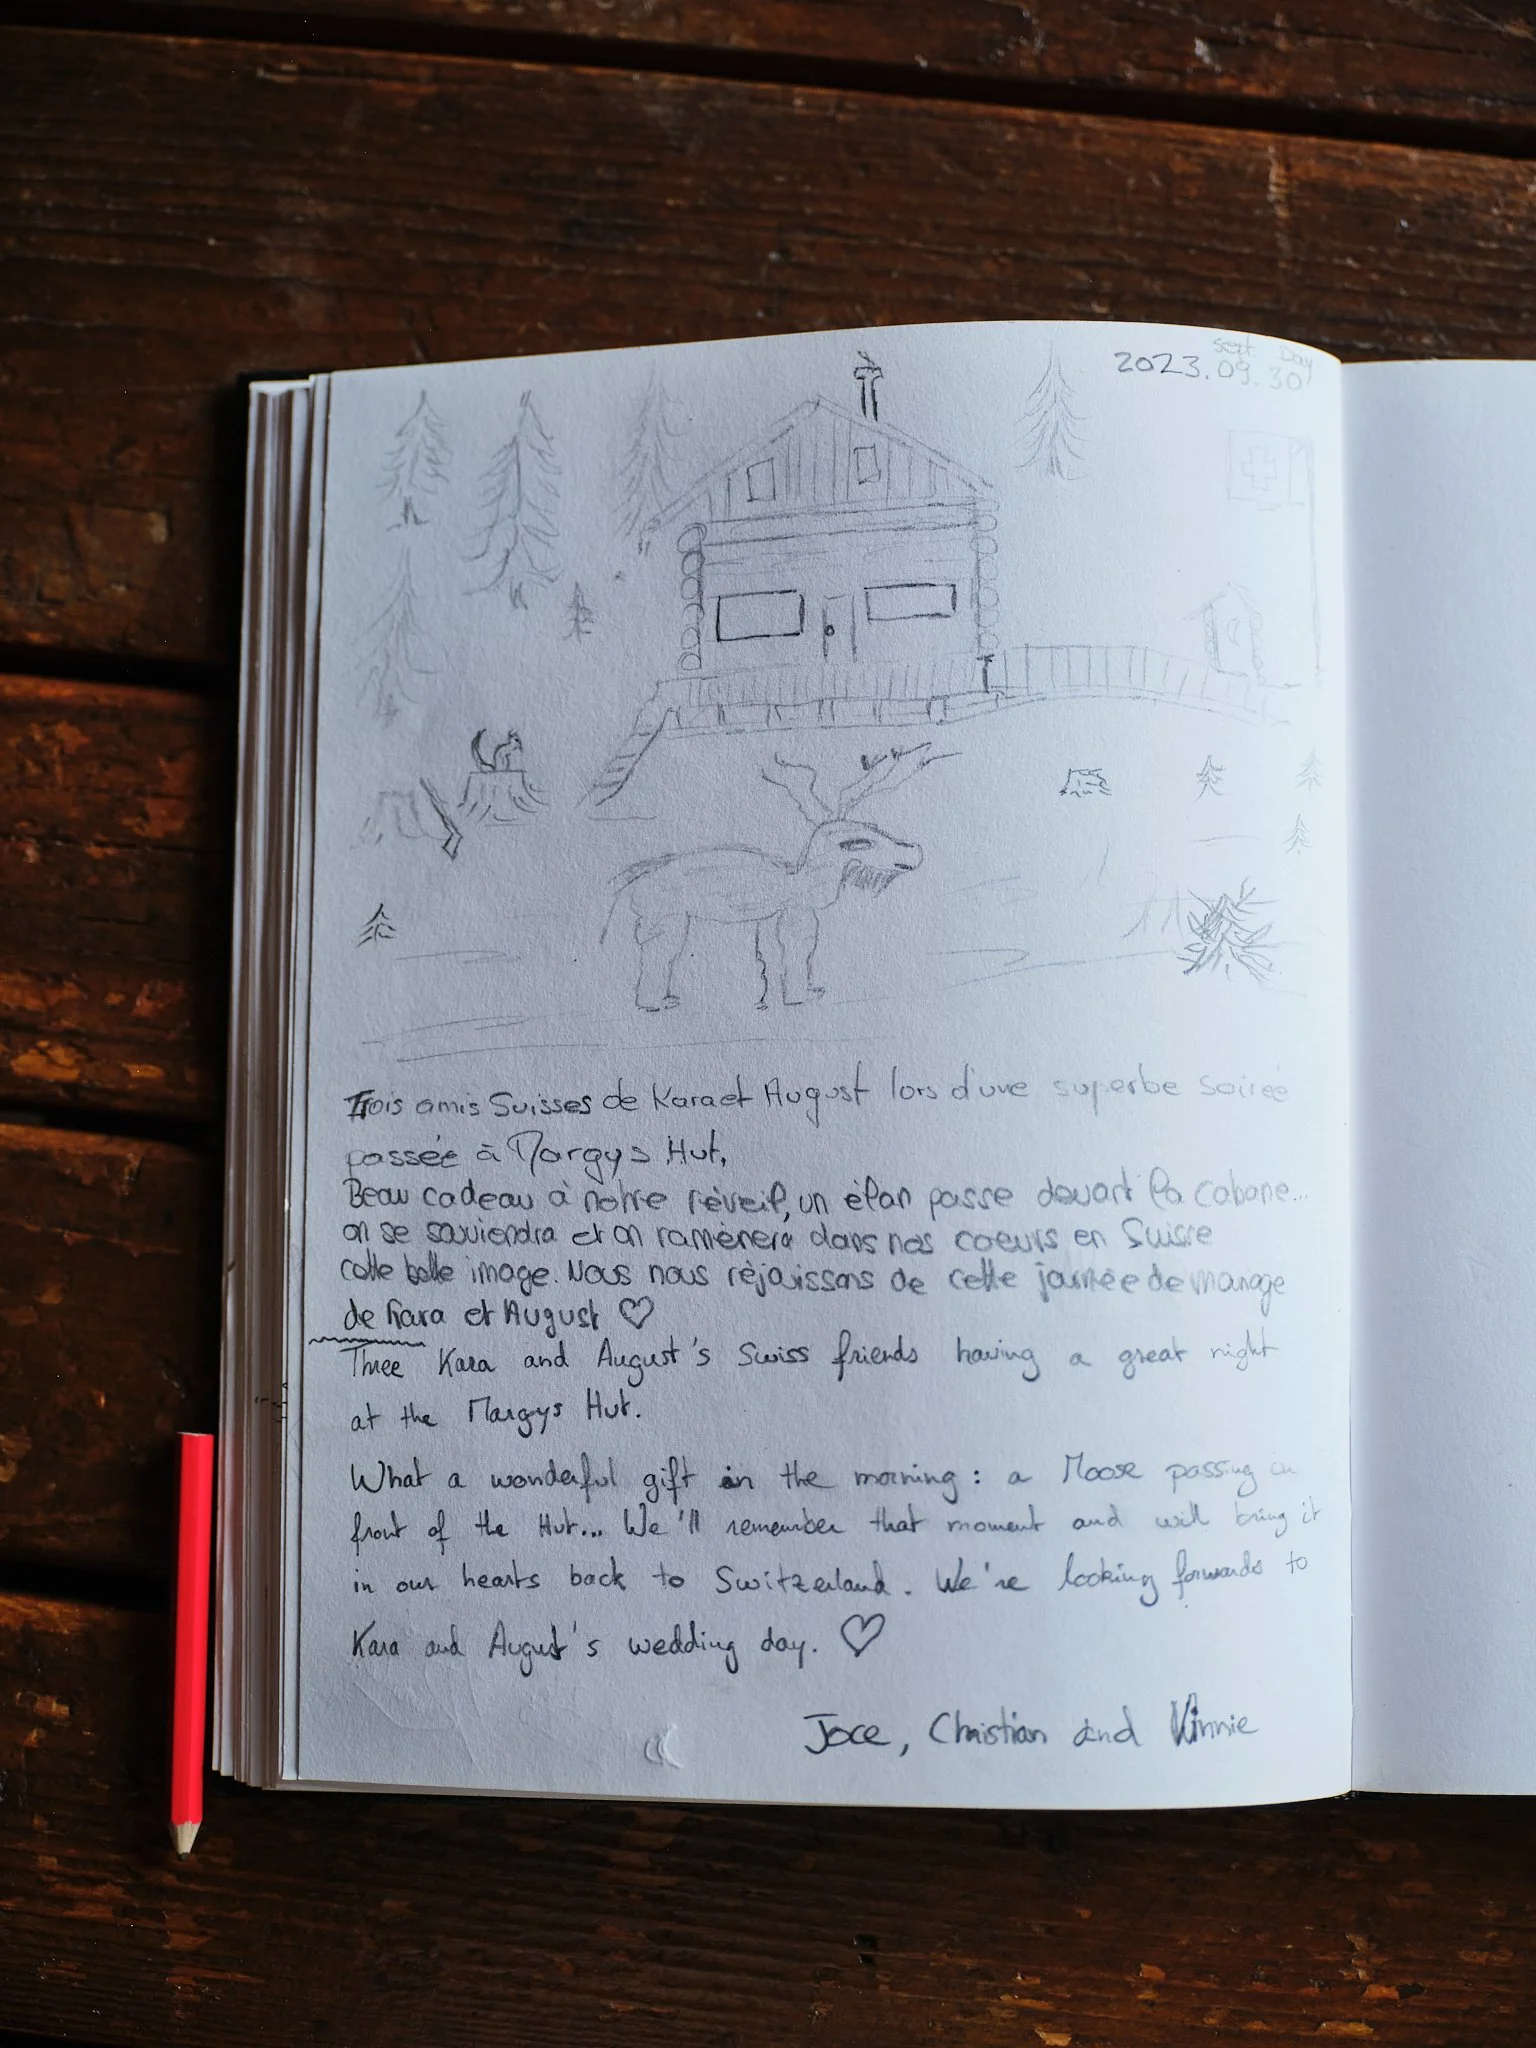 sept Day
2023.09.30
Trois amis Suisses de Kara et August lors d'une superbe soirée
passée à Margys Hut,
Beau cadeau à notre réveil, un élan passe devant la cabane...
on se souviendra et on ramènera dans nos coeurs en Suisse
cette belle image. Nous nous réjouissons de cette journée de mariage
de Kara et August ♡
Three Kara and August's Swiss friends having a great night
at the Margys Hut.
What a wonderful gift in the morning : a Moose passing in
front of the Hut... We'll remember that moment and will bring it
in our hearts back to Switzerland. We're looking forwards to
Kara and August's wedding day. ♡
Joce, Christian and Vinnie